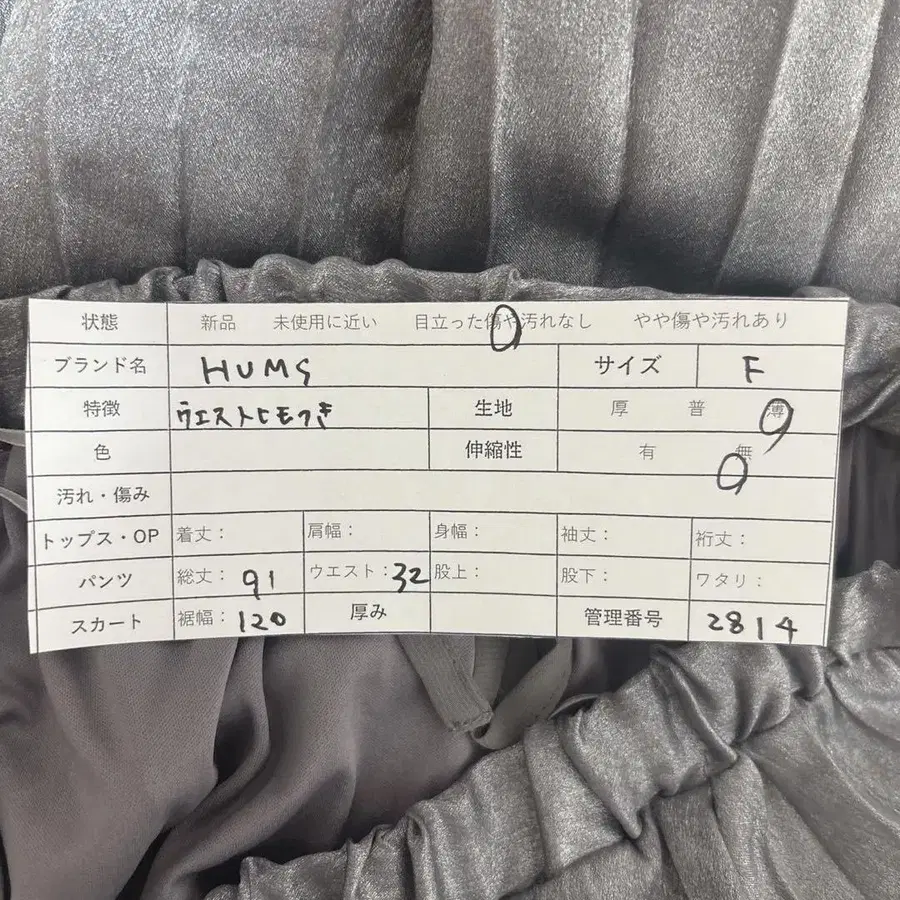 状態 新品 未使用に近い 目立った傷や汚れなし やや傷や汚れあり
ブランド名 HUMS サイズ F
特徴 ウエストヒモつき 生地 厚 普 薄
色 伸縮性 有 無
汚れ・傷み
トップス・OP 着丈： 肩幅： 身幅： 袖丈： 裄丈：
パンツ 総丈： 91 ウエスト： 32 股上： 股下： ワタリ：
スカート 裾幅： 120 厚み 管理番号 2814